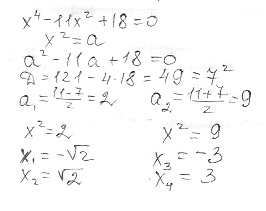 x⁴-11x²+18=0
x²=a
a²-11a+18=0
D=121-4·18=49=7²
a₁=(11-7)/2=2 a₂=(11+7)/2=9
x²=2 x²=9
x₁=-√2 x₃=-3
x₂=√2 x₄=3